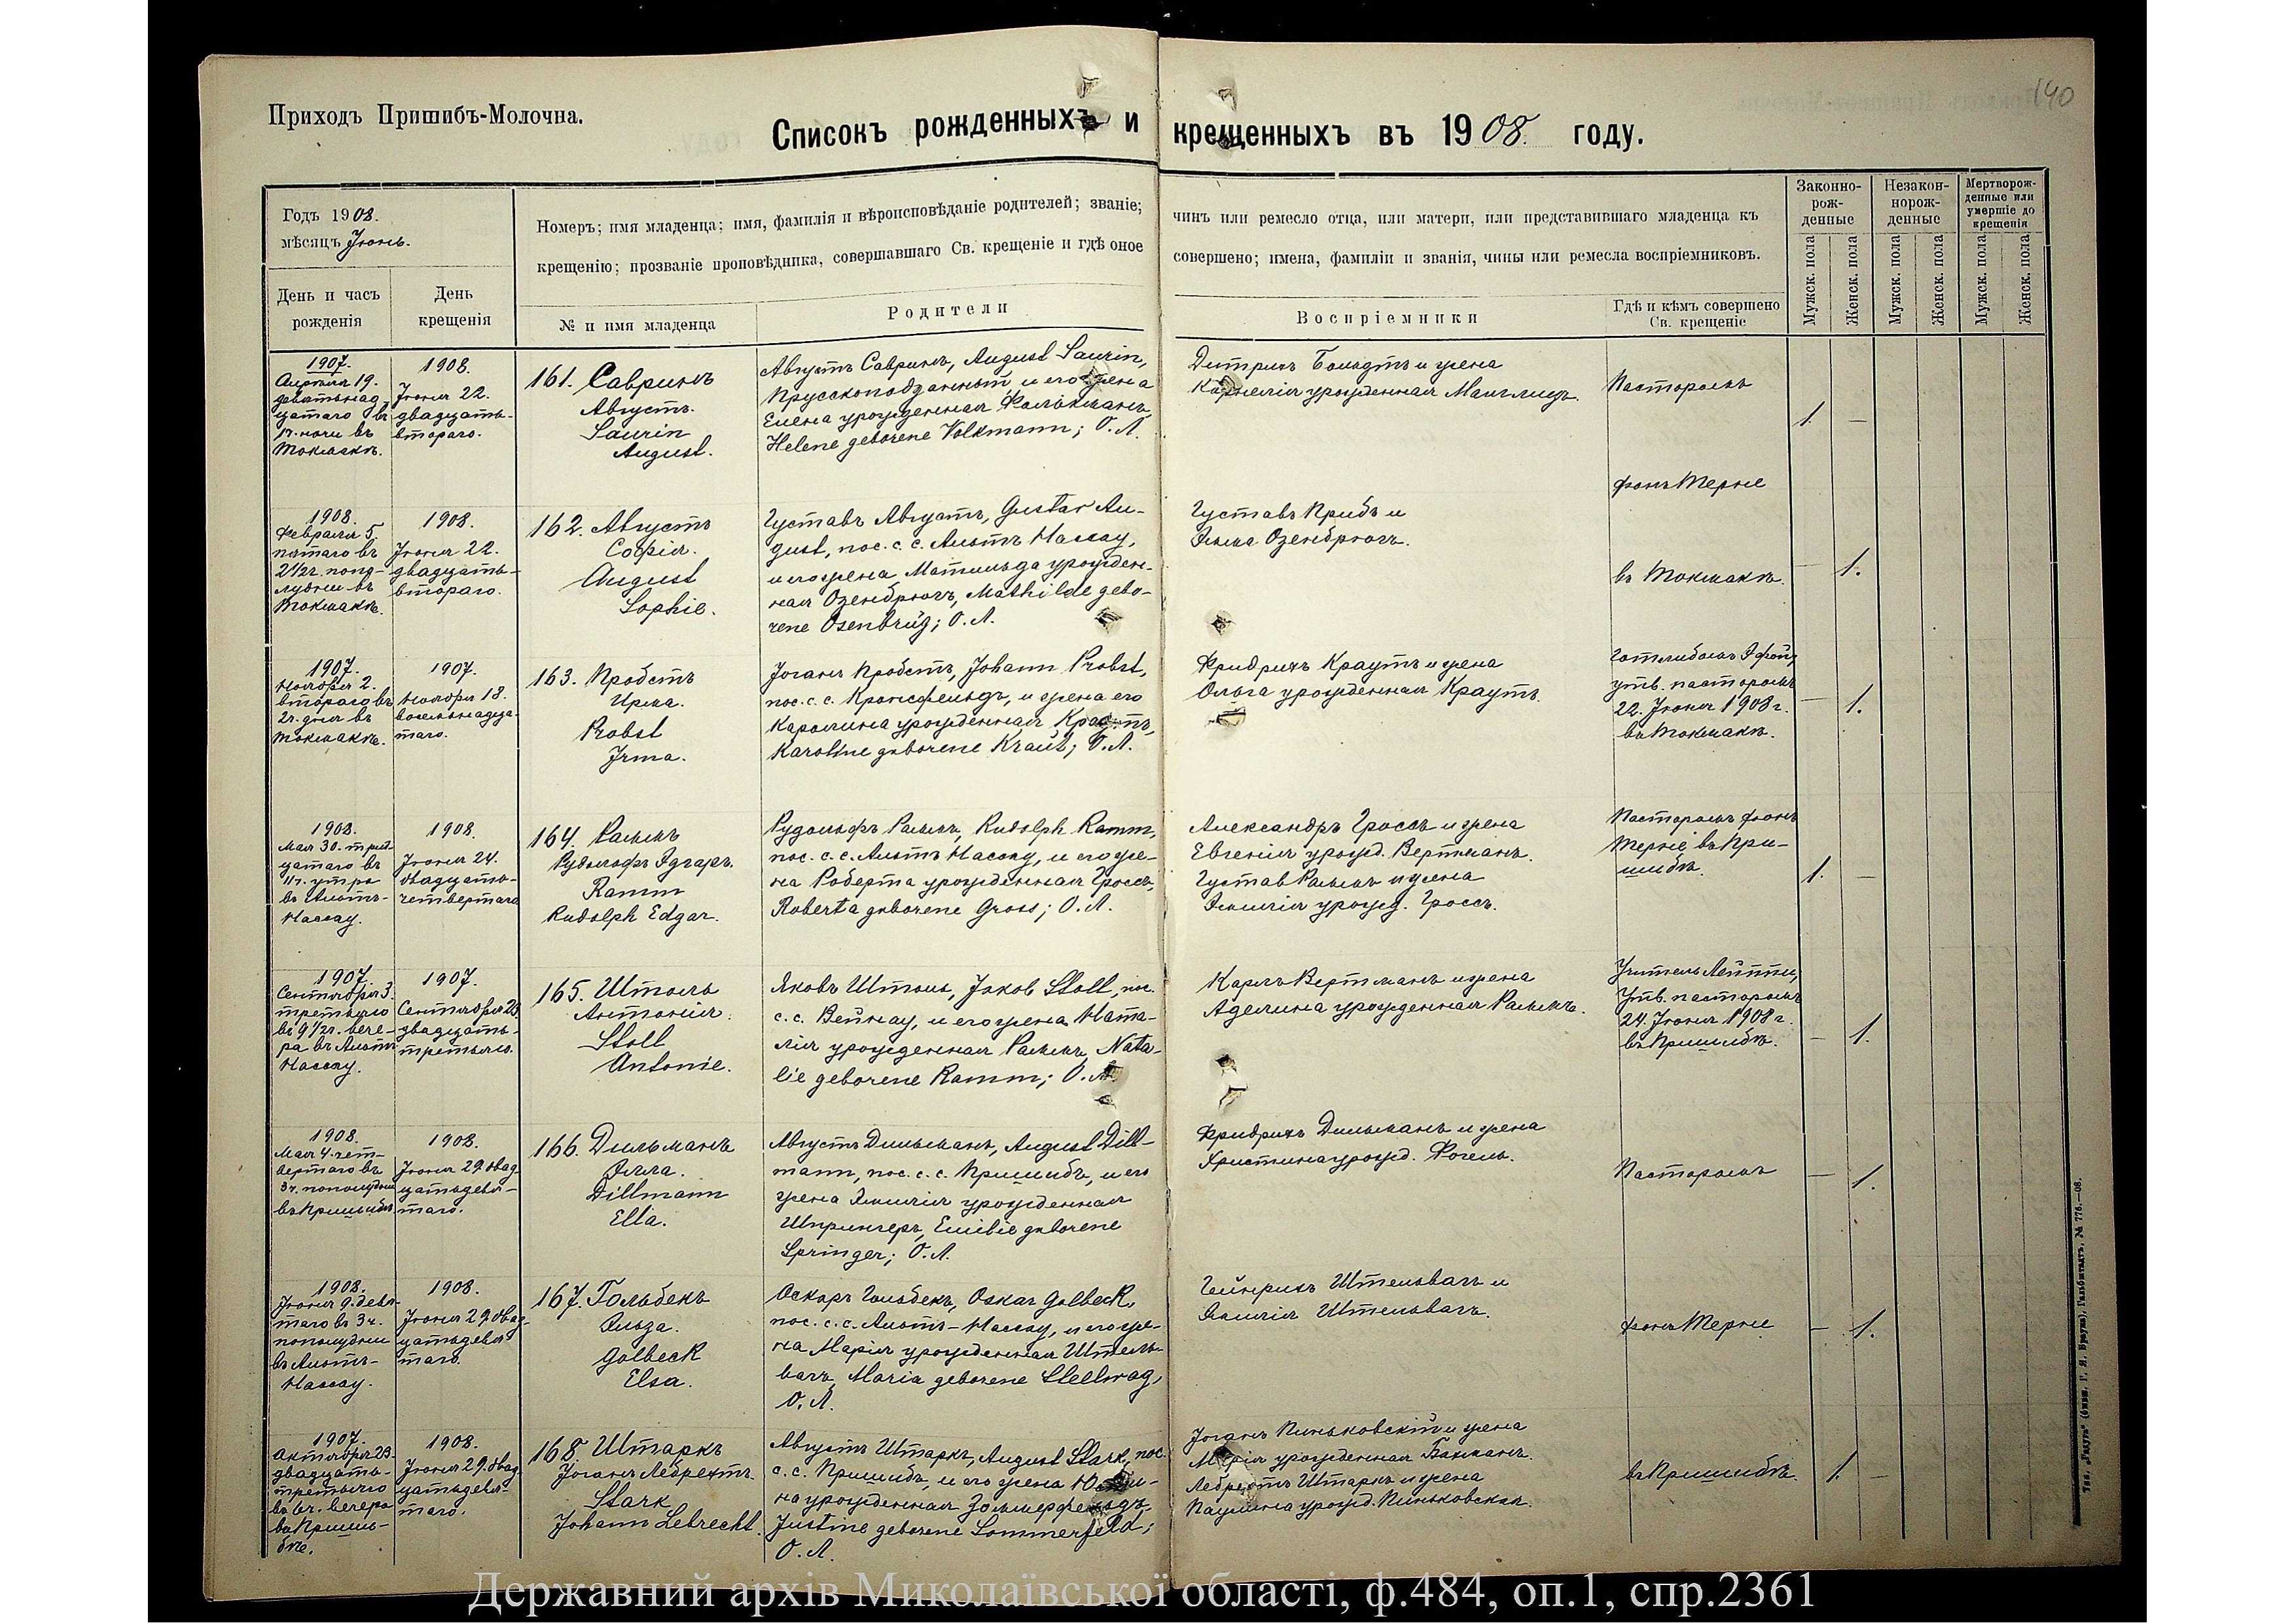 140
Приходъ Пришибъ-Молочна.
Списокъ рожденныхъ и крещенныхъ въ 1908 году.
Годъ 1908.
мѣсяцъ Іюнь.
День и часъ
рожденія
День
крещенія
Номеръ; имя младенца; имя, фамилія и вѣроисповѣданіе родителей; званіе;
крещенію; прозваніе проповѣдника, совершавшаго Св. крещеніе и гдѣ оное
№ и имя младенца
Родители
чинъ или ремесло отца, или матери, или представившаго младенца къ
совершено; имена, фамиліи и званія, чины или ремесла воспріемниковъ.
Воспріемники
Гдѣ и кѣмъ совершено
Св. крещеніе
Законно-
рож-
денные
Незакон-
норож-
денные
Мертворож-
денные или
умершіе до
крещенія
Мужск. пола
Женск. пола
Мужск. пола
Женск. пола
Мужск. пола
Женск. пола
1907.
Апрѣля 19.
девятнад-
цатаго въ
1ч. ночи въ
Токмакѣ.
1908.
Іюня 22.
двадцать-
втораго.
161. Савринъ
Августъ.
Saurin
August.
Августъ Савринъ, August Saurin,
прусскоподданный, и его жена
Елена урожденная Фолькманъ,
Helene geborene Volkmann; О. Л.
Дитрихъ Больдтъ и жена
Корнелія урожденная
Пасторомъ
1. —
фонъ Терне
1908.
Февраля 5.
пятаго въ
2½ч. попо-
лудни въ
Токмакѣ.
1908.
Іюня 22.
двадцать-
втораго.
162. Августъ
Софія.
August
Sophie.
Густавъ Августъ, Gustav Au-
gust, пос. с. с. Альтъ Нассау,
и его жена Матильда урожден-
ная Озенбрюгъ, Mathilde gebo-
rene Osenbrüg; О. Л.
Густавъ Прибъ и
Эмма Озенбрюгъ.
въ Токмакѣ.
— 1.
1907.
Ноября 2.
втораго въ
2ч. дня въ
Токмакѣ.
1907.
Ноября 18.
восемнадца-
таго.
163. Пробстъ
Ирма.
Probst
Irma.
Іоганъ Пробстъ, Johann Probst,
пос. с. с. Кронсфельдъ, и жена его
Каролина урожденная Краутъ,
Karoline geborene Kraut; О. Л.
Фридрихъ Краутъ и жена
Ольга урожденная Краутъ.
утв. пасторомъ
22. Іюня 1908 г.
въ Токмакѣ.
— 1.
1908.
Мая 30. трид-
цатаго въ
11ч. утра
въ Альтъ-
Нассау.
1908.
Іюня 24.
двадцать-
четвертаго
164. Раммъ
Рудольфъ Эдгаръ.
Ramm
Rudolph Edgar.
Рудольфъ Раммъ, Rudolph Ramm,
пос. с. с. Альтъ Нассау, и его же-
на Роберта урожденная Гроссъ,
Roberta geborene Gross; О. Л.
Александръ Гроссъ и жена
Евгенія урожд. Вертманъ.
Густавъ Раммъ и жена
Эмилія урожд. Гроссъ.
Пасторомъ фонъ
Терне въ При-
шибѣ.
1. —
1907.
Сентября 3.
третьяго
въ 9½ч. вече-
ра въ Альтъ
Нассау.
1907.
Сентября 23
двадцать-
третьяго.
165. Штоль
Антонія.
Stoll
Antonie.
Яковъ Штоль, Jakob Stoll, пос.
с. с. Вейнау, и его жена Ната-
лія урожденная Раммъ, Nata-
lie geborene Ramm; О. Л.
Карлъ Вертманъ и жена
Аделина урожденная Раммъ.
Утв. пасторомъ
24. Іюня 1908 г.
въ Пришибѣ.
— 1.
1908.
Мая 4. чет-
вертаго въ
3ч. пополудни
въ Пришибѣ.
1908.
Іюня 29. двад
цатьдевя-
таго.
166. Дильманъ
Элла.
Dillmann
Ella.
Августъ Дильманъ, August Dill-
mann, пос. с. с. Пришибъ, и его
жена Эмилія урожденная
Шпрингеръ, Emilie geborene
Springer; О. Л.
Фридрихъ Дильманъ и жена
Христина урожд. Фогель.
Пасторомъ
— 1.
1908.
Іюня 9. девя-
таго въ 3ч.
пополудни
въ Альтъ-
Нассау.
1908.
Іюня 29. двад-
цатьдевя-
таго.
167. Гольбекъ
Эльза.
Golbeck
Elsa.
Оскаръ Гольбекъ, Oskar Golbeck,
пос. с. с. Альтъ-Нассау, и его же-
на Марія урожденная Штель-
вагъ, Maria geborene Stellwag,
О. Л.
Гейнрихъ Штельвагъ и
Эмилія Штельвагъ.
фонъ Терне
— 1.
1907.
Октября 23.
двадцать-
третьяго
въ 6ч. вечера
въ Приши-
бѣ.
1908.
Іюня 29. двад
цатьдевя-
таго.
168. Штаркъ
Іоганъ Лебрехтъ.
Stark
Johann Lebrecht.
Августъ Штаркъ, August Stark, пос.
с. с. Пришибъ, и его жена Юсти-
на урожденная Зоммерфельдъ,
Justine geborene Sommerfeld;
О. Л.
Іоганъ Пиньковскій и жена
Марія урожденная Бахманъ.
Лебрехтъ Штаркъ и жена
Паулина урожд. Пиньковская.
въ Пришибѣ.
1. —
Тип. „Радуга“ (бывш. Г. Я. Брауна), Гальбштадтъ. № 776.—08.
Державний архів Миколаївської області, ф.484, оп.1, спр.2361